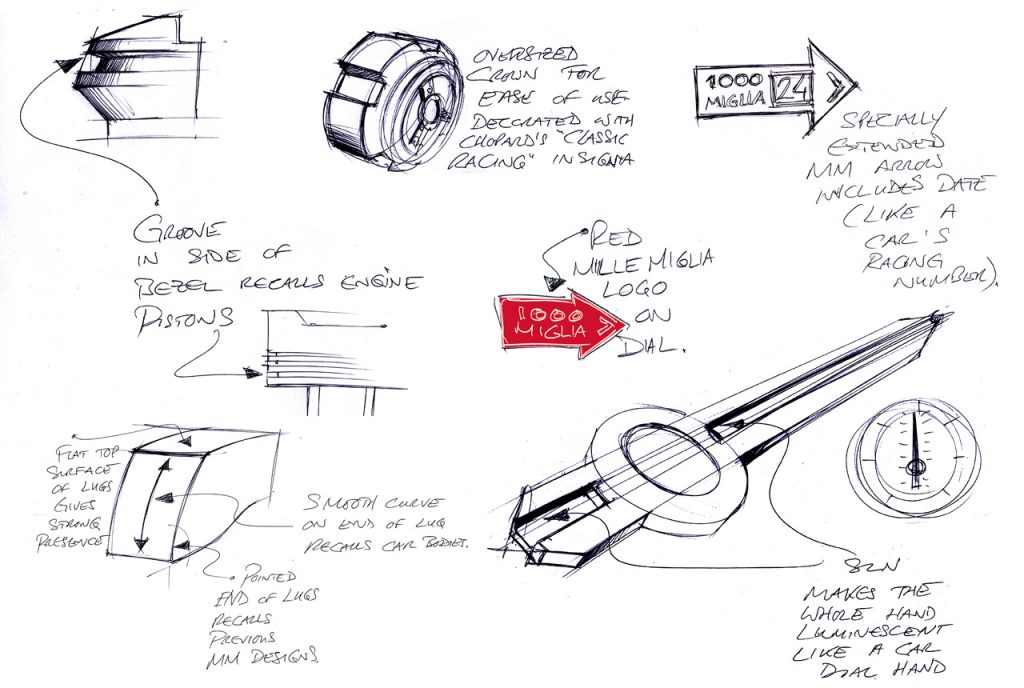 OVERSIZED
CROWN FOR
EASE OF USE
DECORATED WITH
CHOPARD'S "CLASSIC
RACING" INSIGNIA
1000
MIGLIA 24
SPECIALLY
EXTENDED
MM ARROW
INCLUDES DATE
(LIKE A
CAR'S
RACING
NUMBER).
GROOVE
IN SIDE OF
BEZEL RECALLS ENGINE
PISTONS
RED
MILLE MIGLIA
LOGO
ON
DIAL.
1000
MIGLIA
FLAT TOP
SURFACE
OF LUGS
GIVES
STRONG
PRESENCE
SMOOTH CURVE
ON END OF LUG
RECALLS CAR BODIES.
POINTED
END OF LUGS
RECALLS
PREVIOUS
MM DESIGNS.
SLN
MAKES THE
WHOLE HAND
LUMINESCENT
LIKE A CAR
DIAL HAND